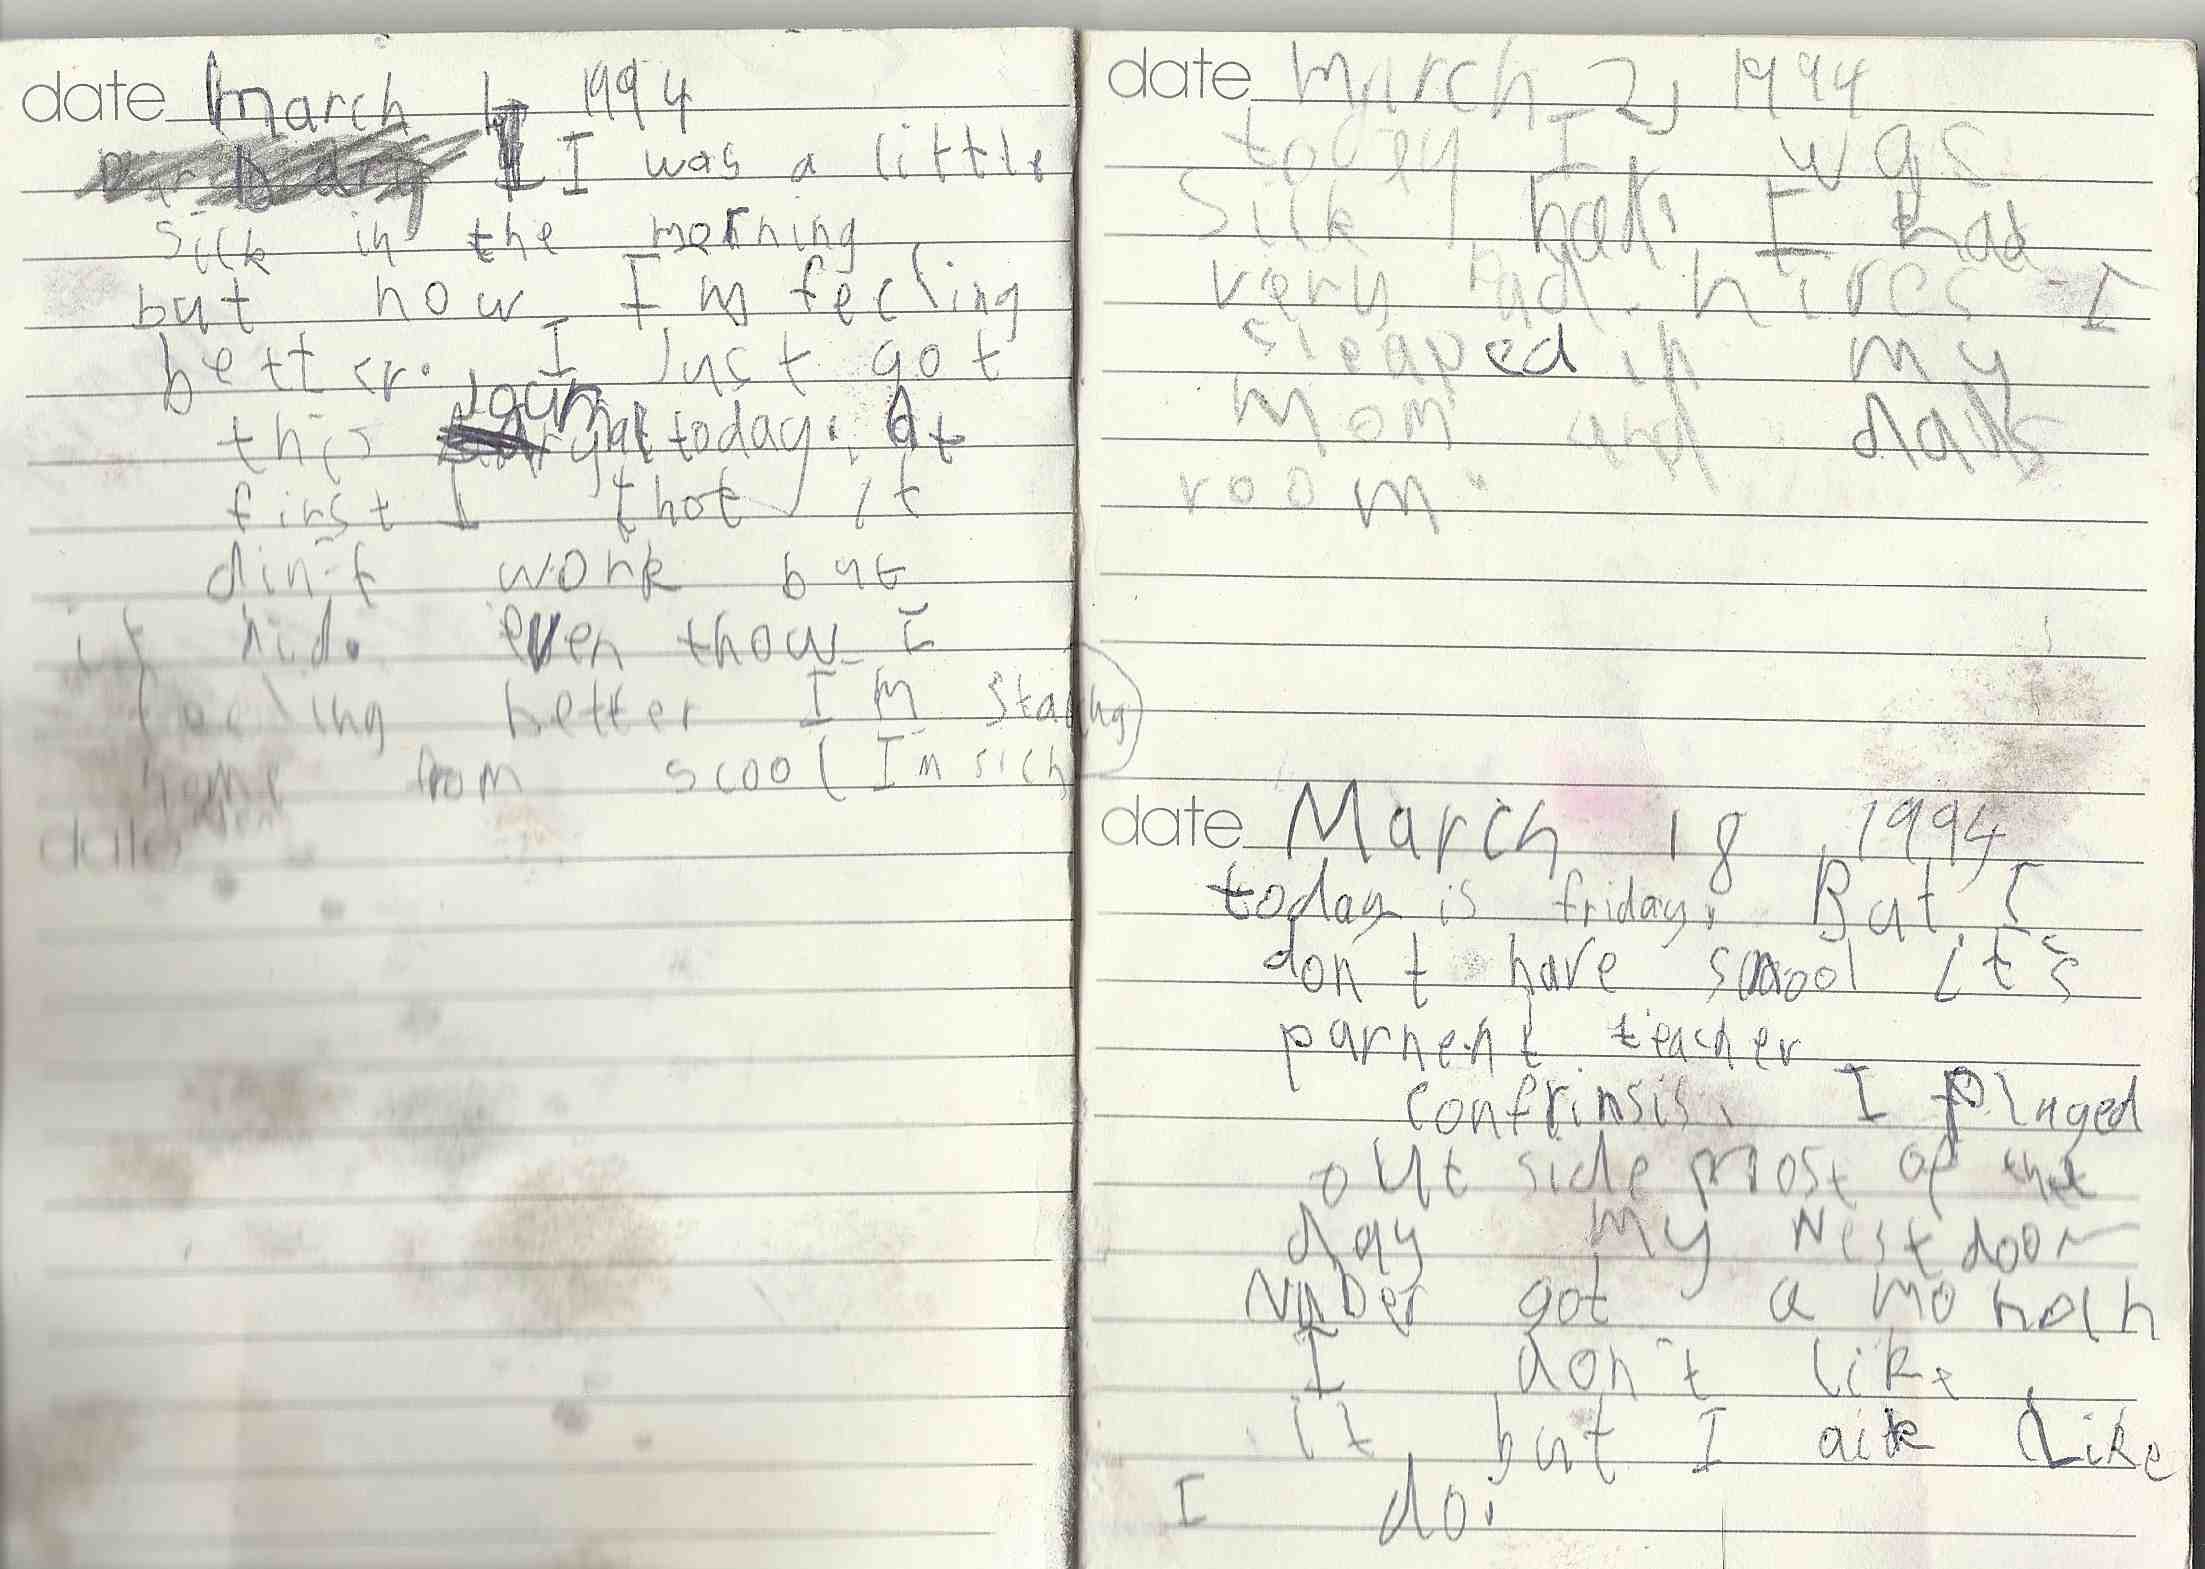 date March 1, 1994
I was a little
sick in the morning
but now I'm feeling
better. I just got
this journal today. At
first I thot it
din't work but
it did. even thow I
feeling better I'm staing
home from scool I'm sich
date
date March 2, 1994
today I was
Sick bad. I had
very bad hires I
sleaped in my
mom and dads
room.
date March 18 1994
today is friday. But I
don't have school it's
parnent teacher
confrinsis. I played
out side most of the
day my Nest door
Nuber got a mohalh
I don't like
it but I ackt like
I do.